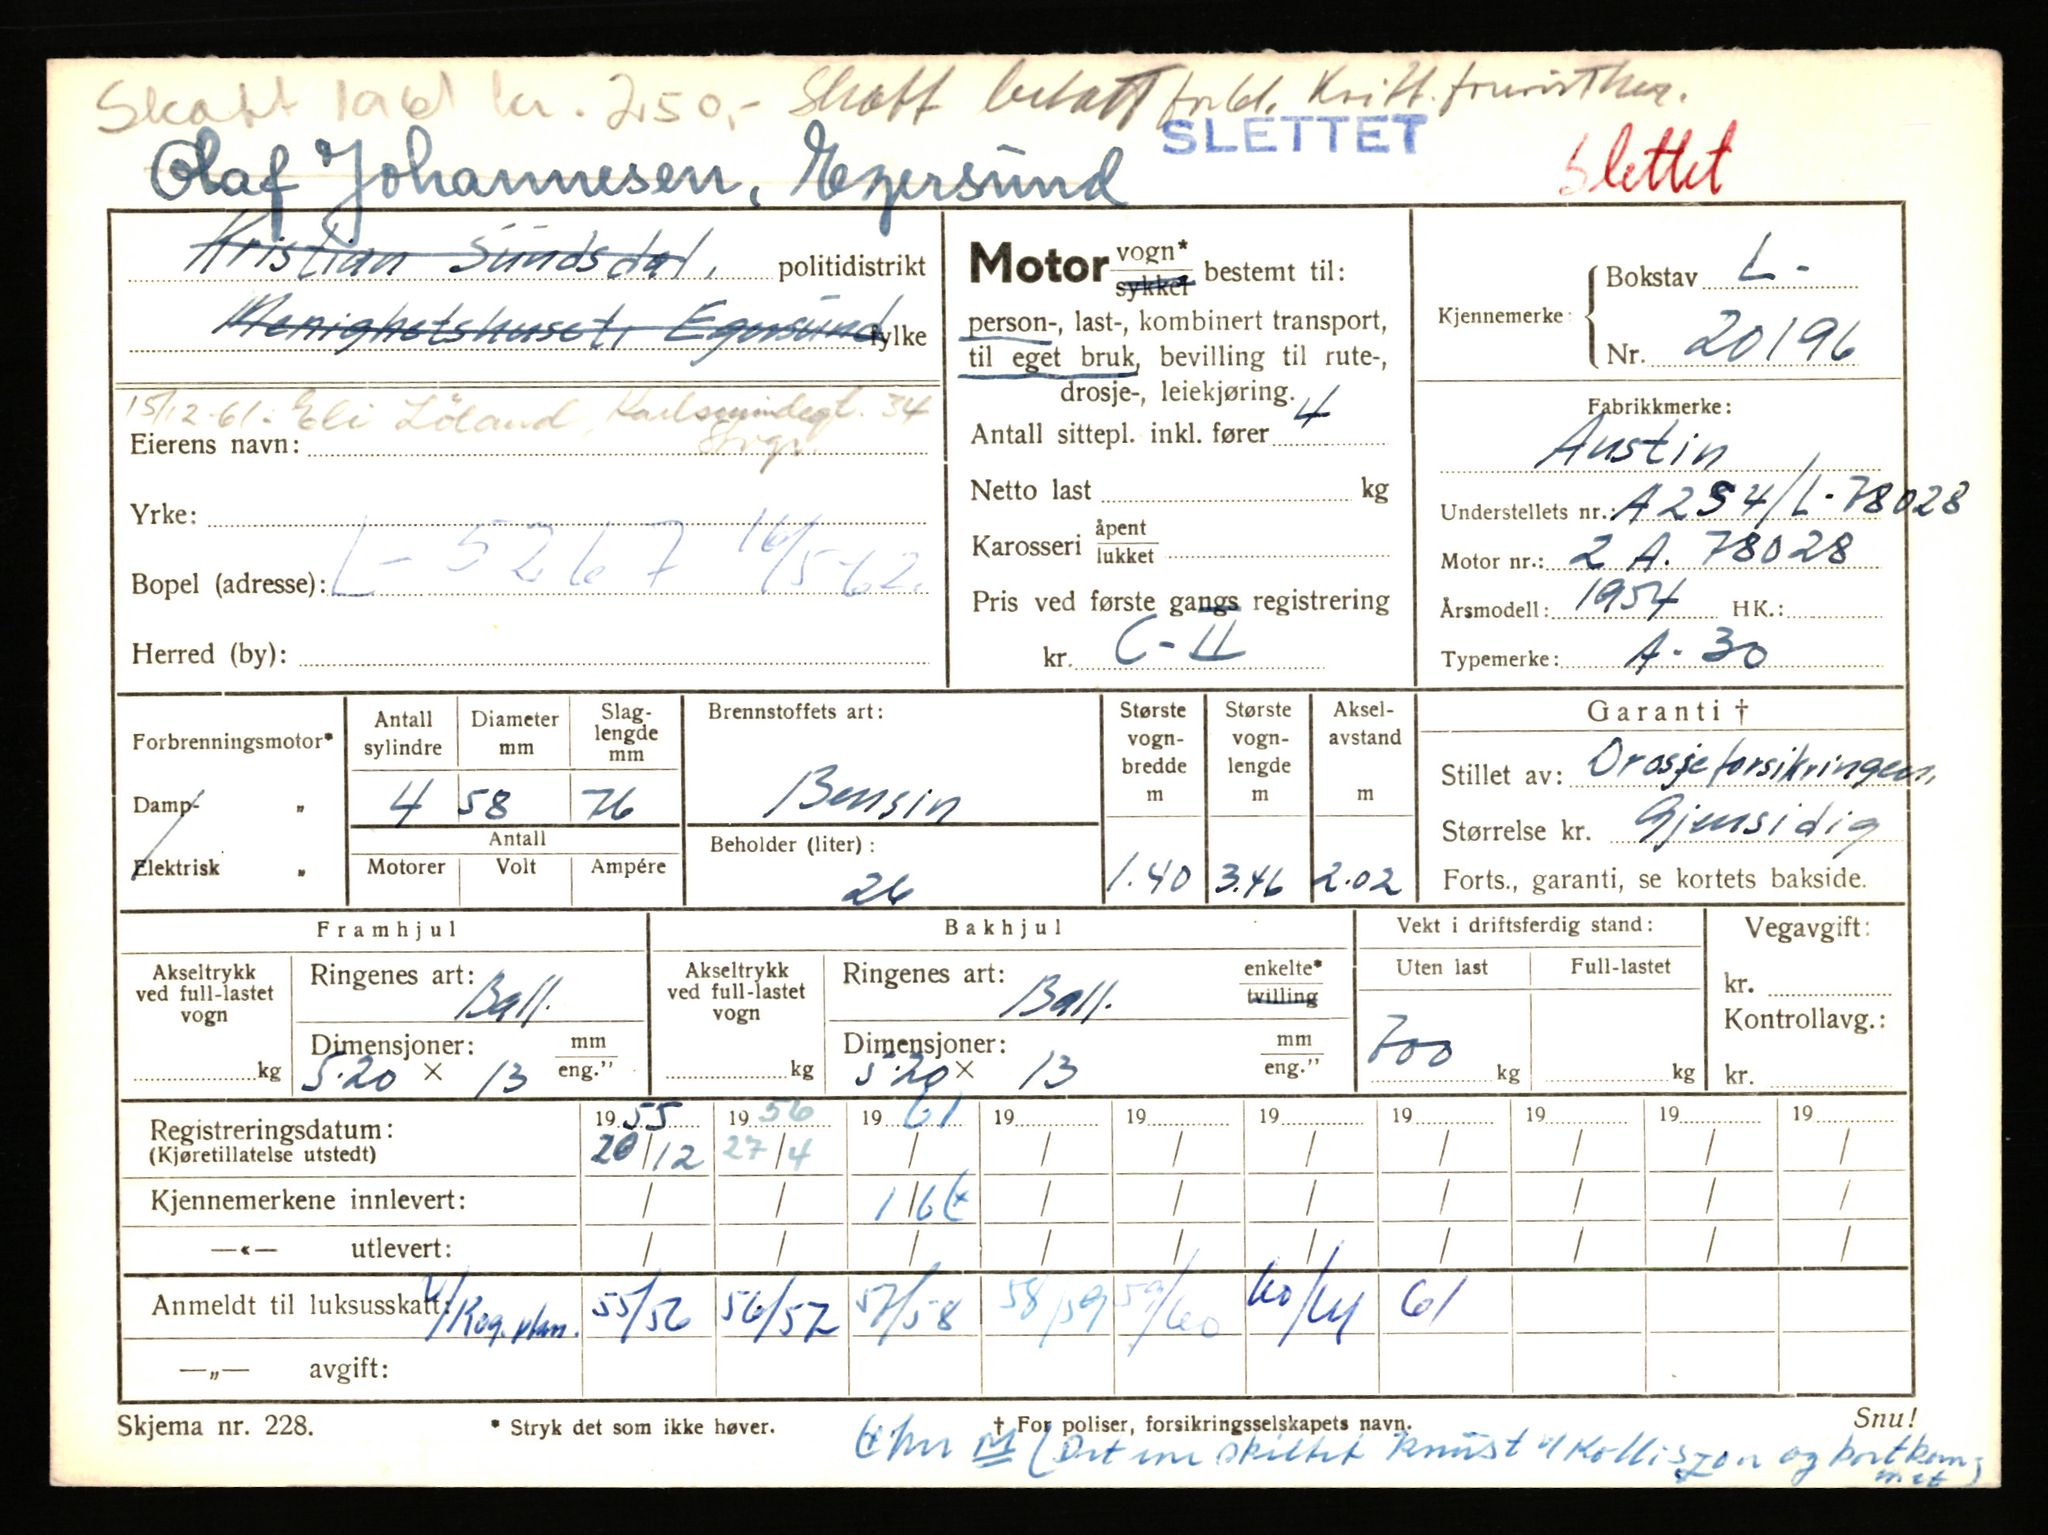 Skatt 1961 kr. 250,- Skatt betalt
SLETTET
Slettet
Olaf Johannesen, Egersund
Kristian Sundsdal, politidistrikt
Menighetshuset, Egersund fylke
15/12-61. Eli Löland, 34
Eierens navn:
Yrke:
L-5267 16/5-62.
Bopel (adresse):
Herred (by):
Motor vogn* / sykkel bestemt til:
person-, last-, kombinert transport,
til eget bruk, bevilling til rute-,
drosje-, leiekjøring.
Antall sittepl. inkl. fører 4
Netto last kg
Karosseri åpent / lukket
Pris ved første gangs registrering
kr. C-II
Kjennemerke: Bokstav L-
Nr. 20196
Fabrikkmerke:
Austin
Understellets nr.: A2S4/L-78028
Motor nr.: 2 A. 78028
Årsmodell: 1954 HK.:
Typemerke: A-30
Forbrenningsmotor*
Damp- „
Elektrisk „
Antall sylindre Diameter mm Slag-lengde mm
4 58 76
Antall
Motorer Volt Ampére
Brennstoffets art:
Bensin
Beholder (liter):
26
Største vogn-bredde m 1.40
Største vogn-lengde m 3.46
Aksel-avstand m 2.02
Garanti †
Stillet av: Drosjeforsikringen,
Størrelse kr. Gjensidig
Forts., garanti, se kortets bakside.
Framhjul
Akseltrykk ved full-lastet vogn kg
Ringenes art: Ball.
Dimensjoner: mm / eng."
5.20 × 13
Bakhjul
Akseltrykk ved full-lastet vogn kg
Ringenes art: Ball. enkelte* / tvilling
Dimensjoner: mm / eng."
5.20 × 13
Vekt i driftsferdig stand:
Uten last Full-lastet
700 kg kg
Vegavgift:
kr.
Kontrollavg.:
kr.
Registreringsdatum: 1955 1956 1961 19 19 19 19 19 19 19
(Kjøretillatelse utstedt) 20/12 27/4 / / / / / / / /
Kjennemerkene innlevert: / / 1/6 / / / / / / /
—«— utlevert: / / / / / / / / / /
Anmeldt til luksusskatt: 55/56 56/57 57/58 58/59 59/60 60/61 61
—„— avgift:
Skjema nr. 228. * Stryk det som ikke høver. † For poliser, forsikringsselskapets navn. Snu!
(Det ene skiltet knust v/ Kollisjon og bortkommet)